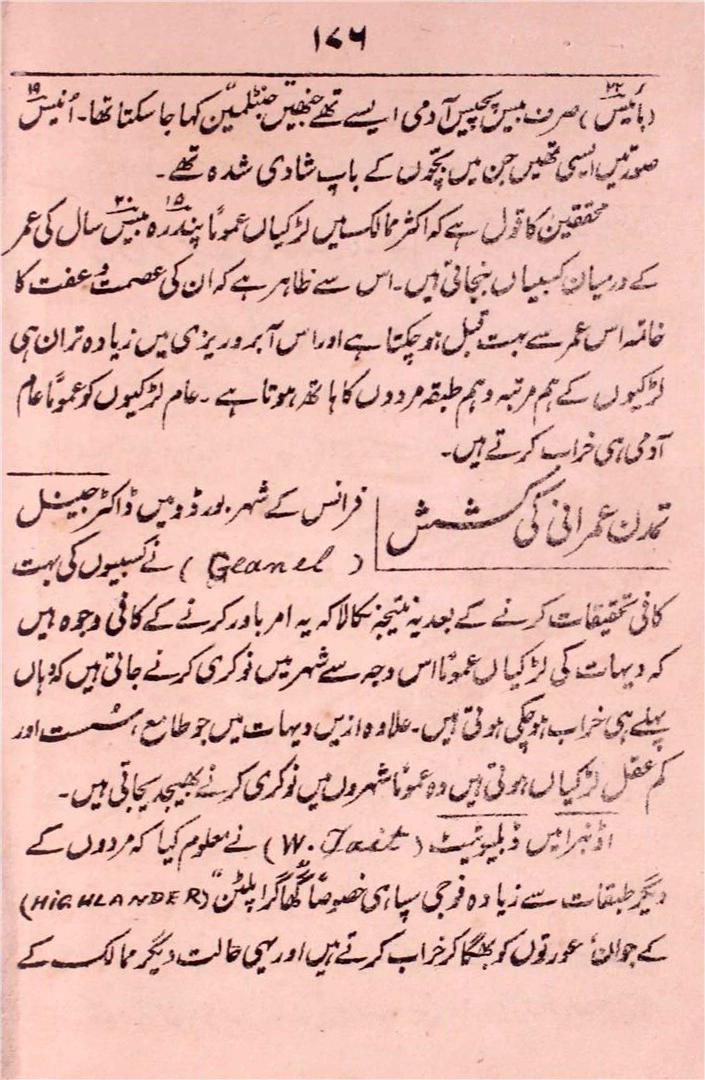 ۱۷۶
(بائیس۲۲) صرف بیس پچیس آدمی ایسے تھے جنھیں جنٹلمین کہا جا سکتا تھا۔ اُنیس۱۹
صورتیں ایسی تھیں جن میں بچّوں کے باپ شادی شدہ تھے۔
محققین کا قول ہے کہ اکثر ممالک میں لڑکیاں عموماً پندرہ۱۵ بیس۲۰ سال کی عمر
کے درمیان کسبیاں بنجاتی ہیں۔ اس سے ظاہر ہے کہ ان کی عصمت و عفت کا
خاتمہ اس عمر سے بہت قبل ہو چکتا ہے اور اس آبروریزی میں زیادہ تر ان ہی
لڑکیوں کے ہم مرتبہ وہم طبقہ مردوں کا ہاتھ ہوتا ہے۔ عام لڑکیوں کو عموماً عام
آدمی ہی خراب کرتے ہیں۔
تمدن عمرانی کی کشش
فرانس کے شہر بورڈو میں ڈاکٹر جینل
(Geanel) نے کسبیوں کی بہت
کافی تحقیقات کرنے کے بعد یہ نتیجہ نکالا کہ یہ امر باور کرنے کے کافی وجوہ ہیں
کہ دیہات کی لڑکیاں عموماً اس وجہ سے شہر میں نوکری کرنے جاتی ہیں کہ وہاں
پہلے ہی خراب ہو چکی ہوتی ہیں۔ علاوہ ازیں دیہات میں جو طامع، سُست اور
کم عقل لڑکیاں ہوتی ہیں وہ عموماً شہروں میں نوکری کرنے بھیجدیجاتی ہیں۔
اڈنبرا میں ڈبلیوٹیٹ (W. Tait) نے معلوم کیا کہ مردوں کے
دیگر طبقات سے زیادہ فوجی سپاہی خصوصاً "گھاگرا پلٹن" (HIGHLANDER)
کے جوان، عورتوں کو بھگا کر خراب کرتے ہیں اور یہی حالت دیگر ممالک کے